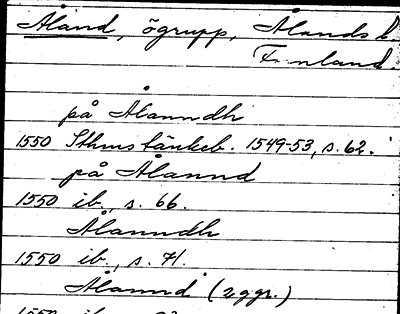 Åland, ögrupp, Ålands l.
Finland.
på Åланndh
1550 Sthms tänkeb. 1549-53, s. 62.
på Ålannd
1550 ib., s. 66.
Ålanndh
1550 ib., s. 71.
Ålannd (2 ggr.)
1550 ib.